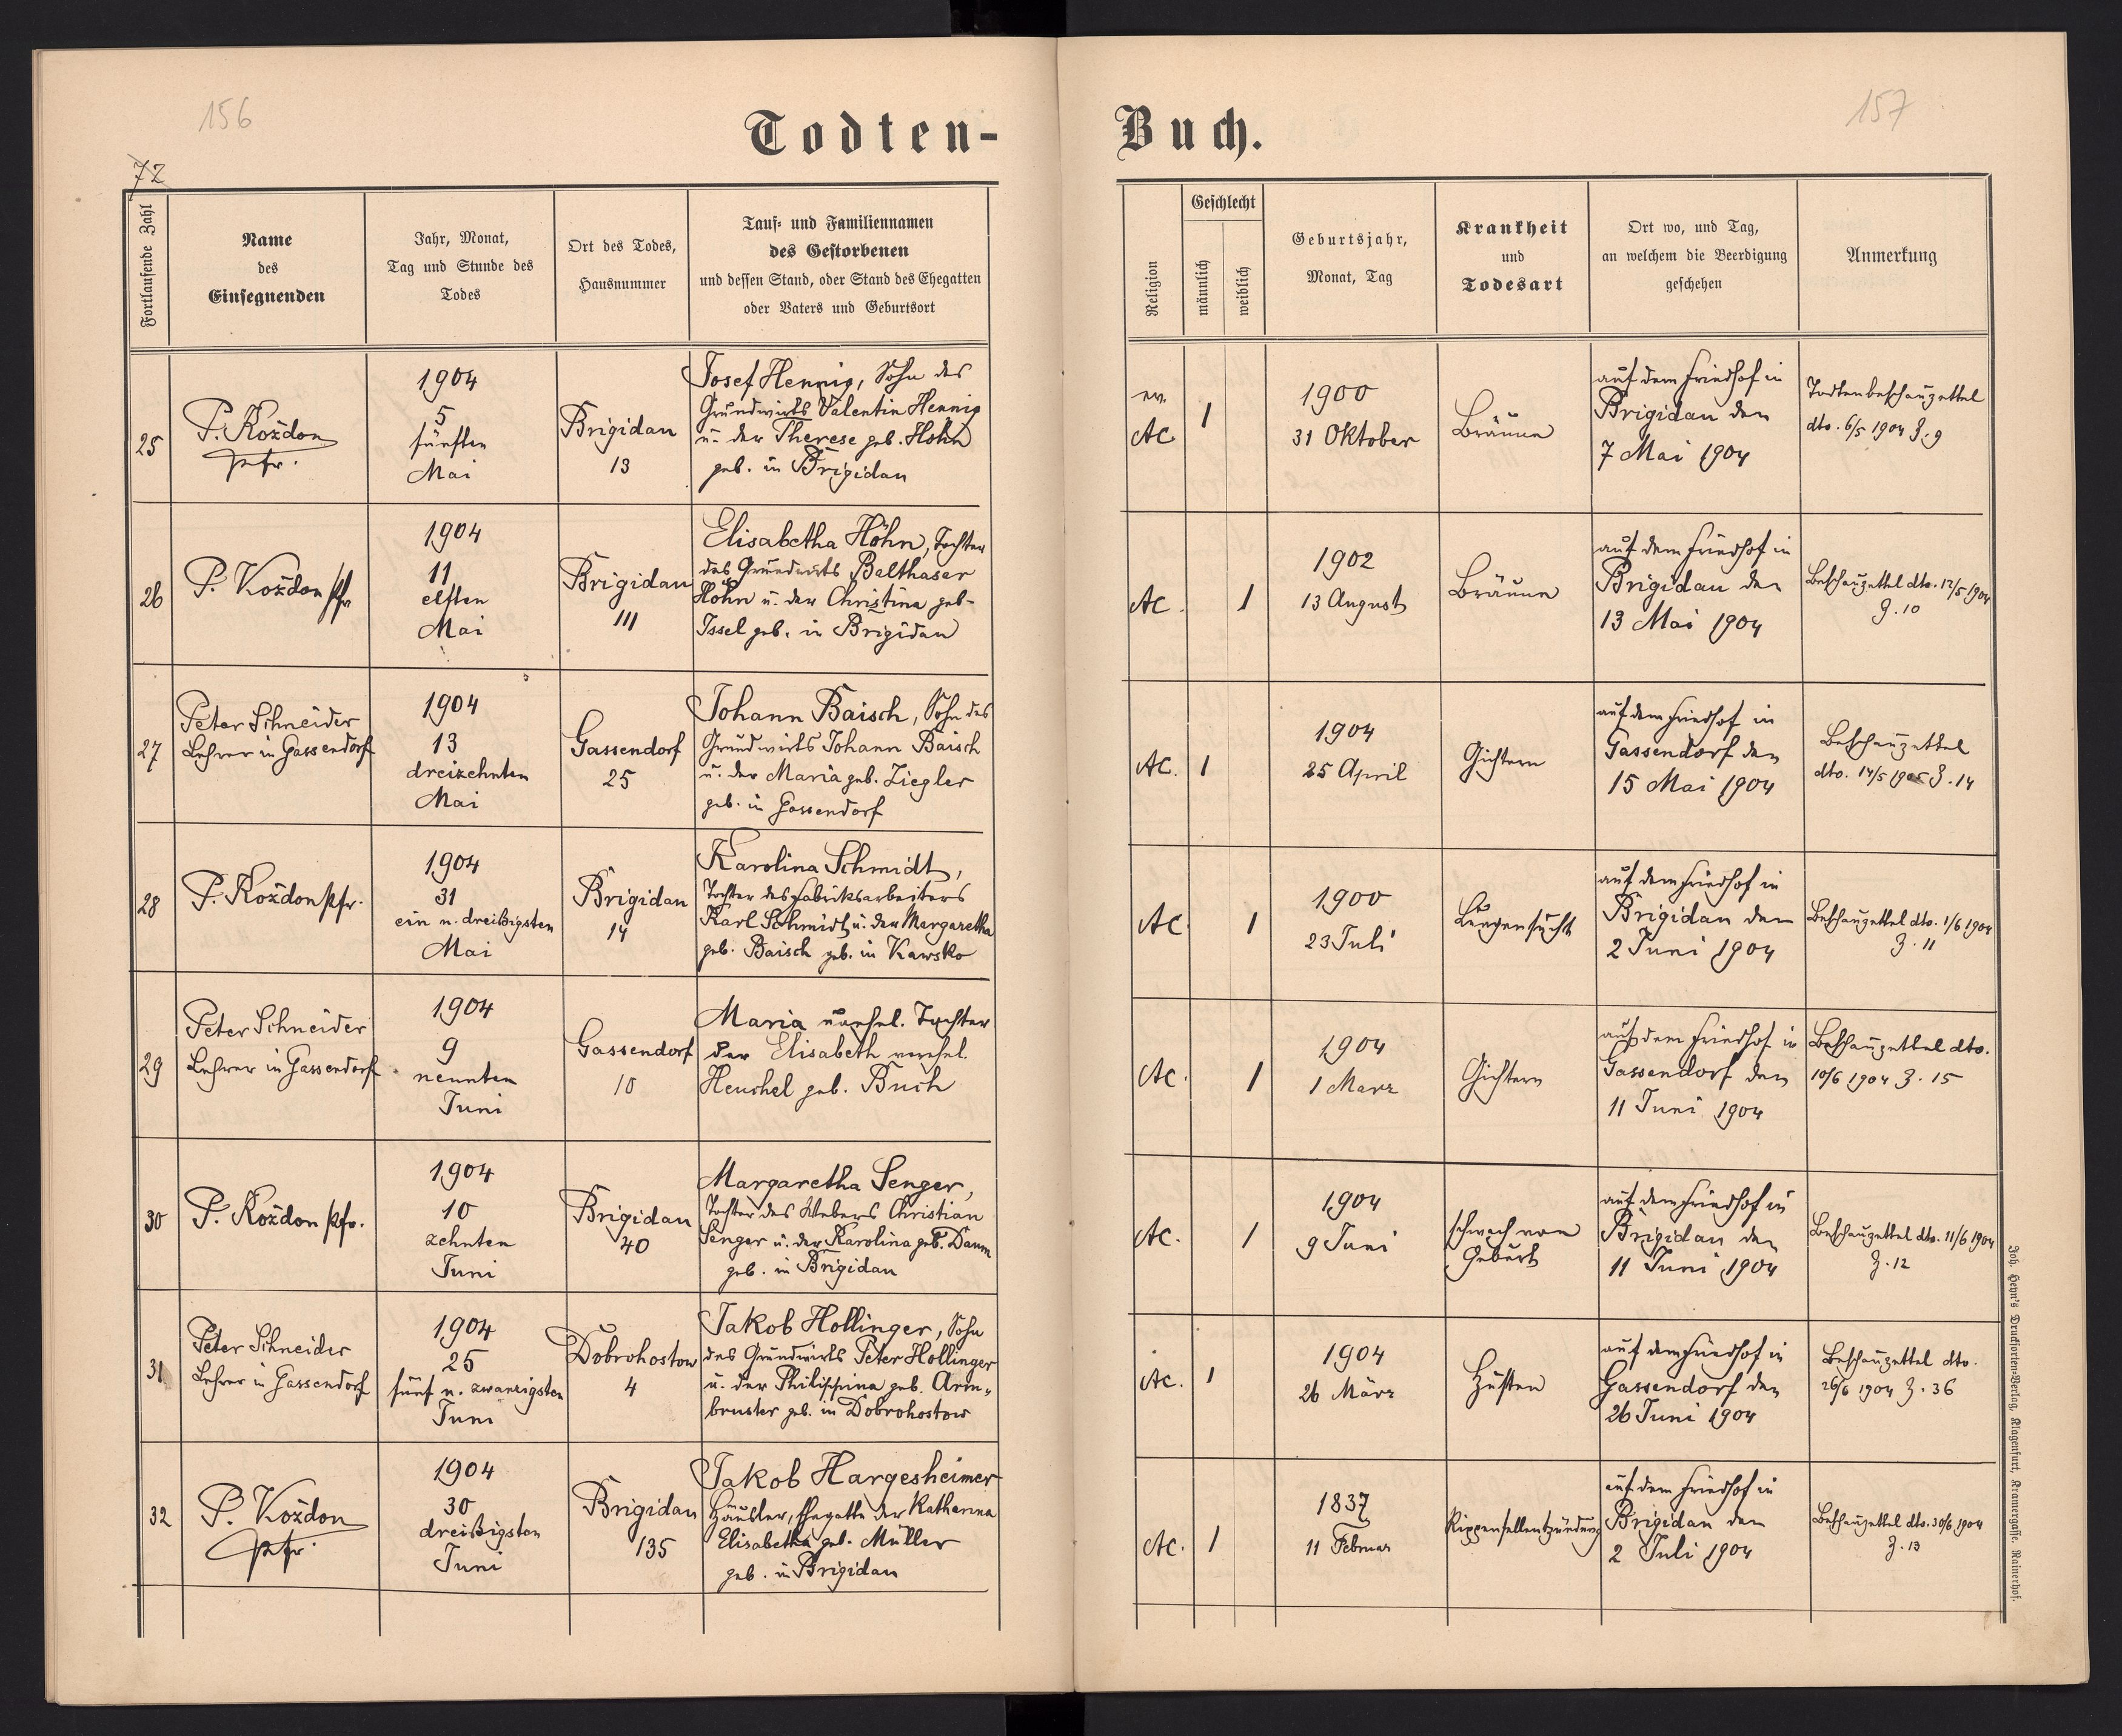 156
72
Todten-
Fortlaufende Zahl
Name
des
Einsegnenden
Jahr, Monat,
Tag und Stunde des
Todes
Ort des Todes,
Hausnummer
Tauf- und Familiennamen
des Gestorbenen
und dessen Stand, oder Stand des Ehegatten
oder Vaters und Geburtsort
25
P. Kożdon
pfr.
1904
5
fünften
Mai
Brigidau
13
Josef Hennig, Sohn des
Grundwirts Valentin Hennig
u. der Therese geb. Höhn
geb. in Brigidau
26
P. Kożdon pfr
1904
11
elften
Mai
Brigidau
111
Elisabetha Höhn, Tochter
des Grundwirts Balthaser
Höhn u. der Christina geb.
Issel geb. in Brigidau
27
Peter Schneider
Lehrer in Gassendorf
1904
13
dreizehnten
Mai
Gassendorf
25
Johann Baisch, Sohn des
Grundwirts Johann Baisch
u. der Maria geb. Ziegler
geb. in Gassendorf
28
P. Kożdon pfr.
1904
31
ein u. dreißigsten
Mai
Brigidau
14
Karolina Schmidt,
Tochter des Fabriksarbeiters
Karl Schmidt u. der Margaretha
geb. Baisch geb. in Kawsko
29
Peter Schneider
Lehrer in Gassendorf
1904
9
neunten
Juni
Gassendorf
10
Maria unehel. Tochter
der Elisabeth verehel.
Heuchel geb. Buch
30
P. Kożdon pfr.
1904
10
zehnten
Juni
Brigidau
40
Margaretha Senger,
Tochter des Webers Christian
Senger u. der Karolina geb. Daum
geb. in Brigidau
31
Peter Schneider
Lehrer in Gassendorf
1904
25
fünf u. zwanzigsten
Juni
Dobrohostow
4
Jakob Hollinger, Sohn
des Grundwirts Peter Hollinger
u. der Philippina geb. Arm-
bruster geb. in Dobrohostow
32
P. Kożdon
pfr.
1904
30
dreißigsten
Juni
Brigidau
135
Jakob Hargesheimer
Häusler, Ehegatte der Katharina
Elisabetha geb. Müller
geb. in Brigidau
157
Buch.
Religion
Geschlecht
männlich
weiblich
Geburtsjahr,
Monat, Tag
Krankheit
und
Todesart
Ort wo, und Tag,
an welchem die Beerdigung
geschehen
Anmerkung
ev.
AC
1
1900
31 Oktober
Bräune
auf dem Friedhof in
Brigidau den
7 Mai 1904
Todtenbeschauzettel
dto. 6/5 1904 Z. 9
AC.
1
1902
13 August
Bräune
auf dem Friedhof in
Brigidau den
13 Mai 1904
Beschauzettel dto. 12/5 1904
Z. 10
AC.
1
1904
25 April
Gichtern
auf dem Friedhof in
Gassendorf den
15 Mai 1904
Beschauzettel
dto. 14/5 1905 Z. 14
AC.
1
1900
23 Juli
Lungensucht
auf dem Friedhof in
Brigidau den
2 Juni 1904
Beschauzettel dto. 1/6 1904
Z. 11
AC.
1
1904
1 März
Gichtern
auf dem Friedhof in
Gassendorf den
11 Juni 1904
Beschauzettel dto.
10/6 1904 Z. 15
AC.
1
1904
9 Juni
schwach von
Geburt
auf dem Friedhof in
Brigidau den
11 Juni 1904
Beschauzettel dto. 11/6 1904
Z. 12
AC.
1
1904
26 März
Husten
auf dem Friedhof in
Gassendorf den
26 Juni 1904
Beschauzettel dto.
26/6 1904 Z. 36
AC.
1
1837
11 Februar
Rippenfellentzündung
auf dem Friedhof in
Brigidau den
2 Juli 1904
Beschauzettel dto. 30/6 1904
Z. 13
Joh. Heyn's Drucksorten-Verlag, Klagenfurt, Kramergasse. Rainerhof.